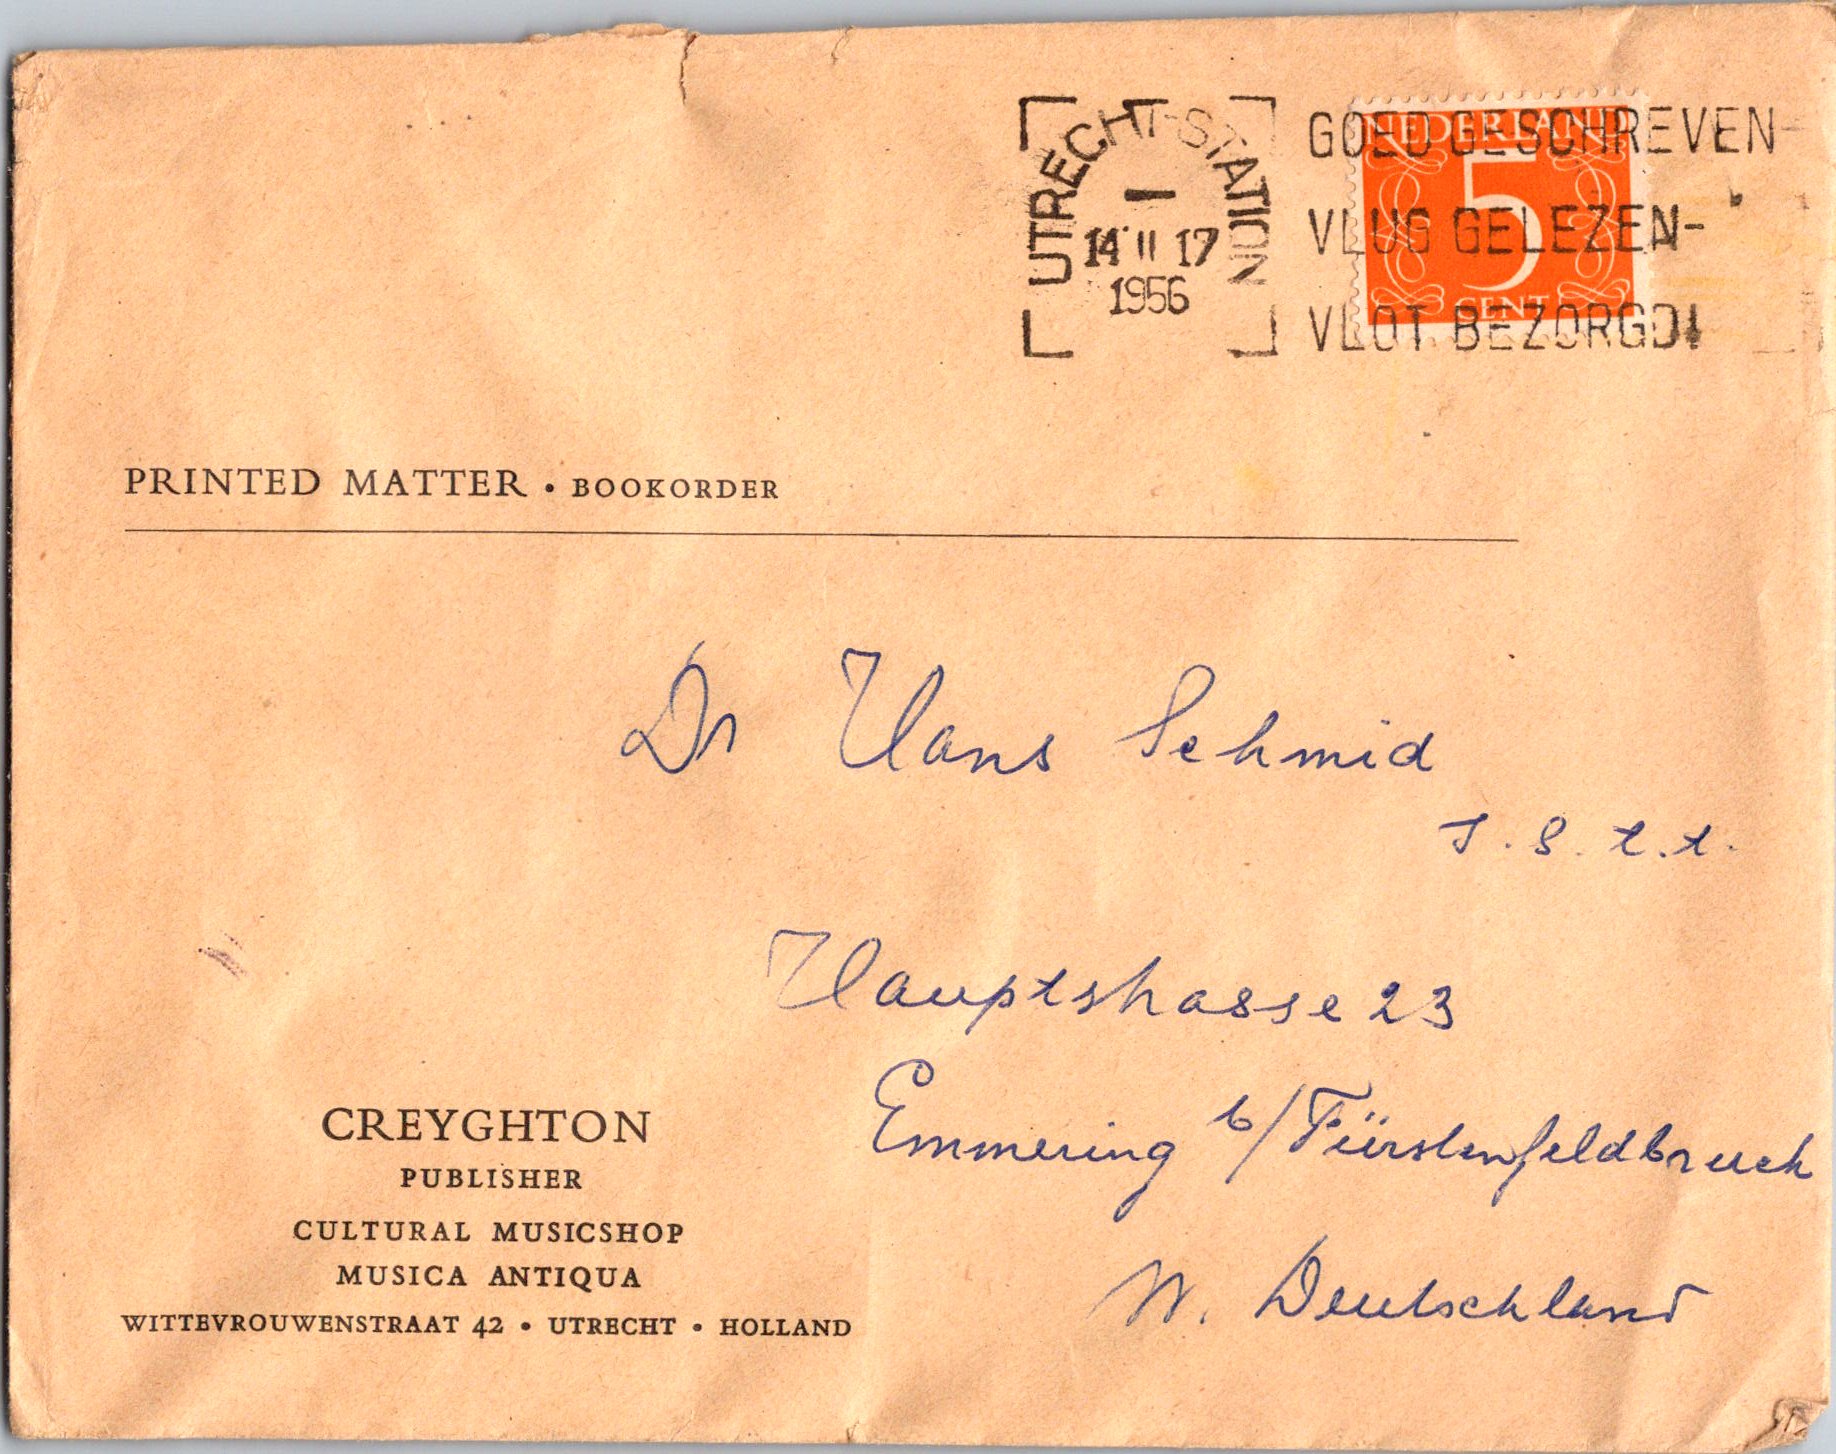 UTRECHT-STATION
14 II 17
1956
GOED GESCHREVEN-
VLUG GELEZEN-
VLOT BEZORGD!
NEDERLAND
5
CENT
PRINTED MATTER • BOOKORDER
Dr Hans Schmid
Hauptstrasse 23
Emmering b/Fürstenfeldbruck
W. Deutschland
CREYGHTON
PUBLISHER
CULTURAL MUSICSHOP
MUSICA ANTIQUA
WITTEVROUWENSTRAAT 42 • UTRECHT • HOLLAND